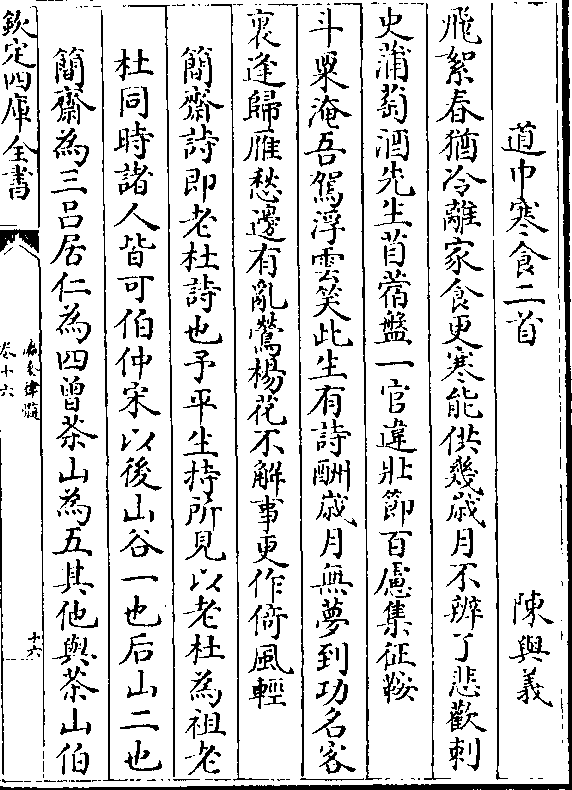 道中寒食二首 陳與義
飛絮春猶冷離家食更寒能供幾歲月不辨了悲歡刺
史蒲萄酒先生苜蓿盤一官違壯節百慮集征鞍
斗粟淹吾駕浮雲笑此生有詩酬歲月無夢到功名客
裏逢歸雁愁邊有亂鶯楊花不解事更作倚風輕
簡齋詩即老杜詩也予平生持所見以老杜為祖老
杜同時諸人皆可伯仲宋以後山谷一也后山二也
簡齋為三吕居仁為四曾茶山為五其他與茶山伯
欽定四庫全書
瀛奎律髓
卷十六
十六